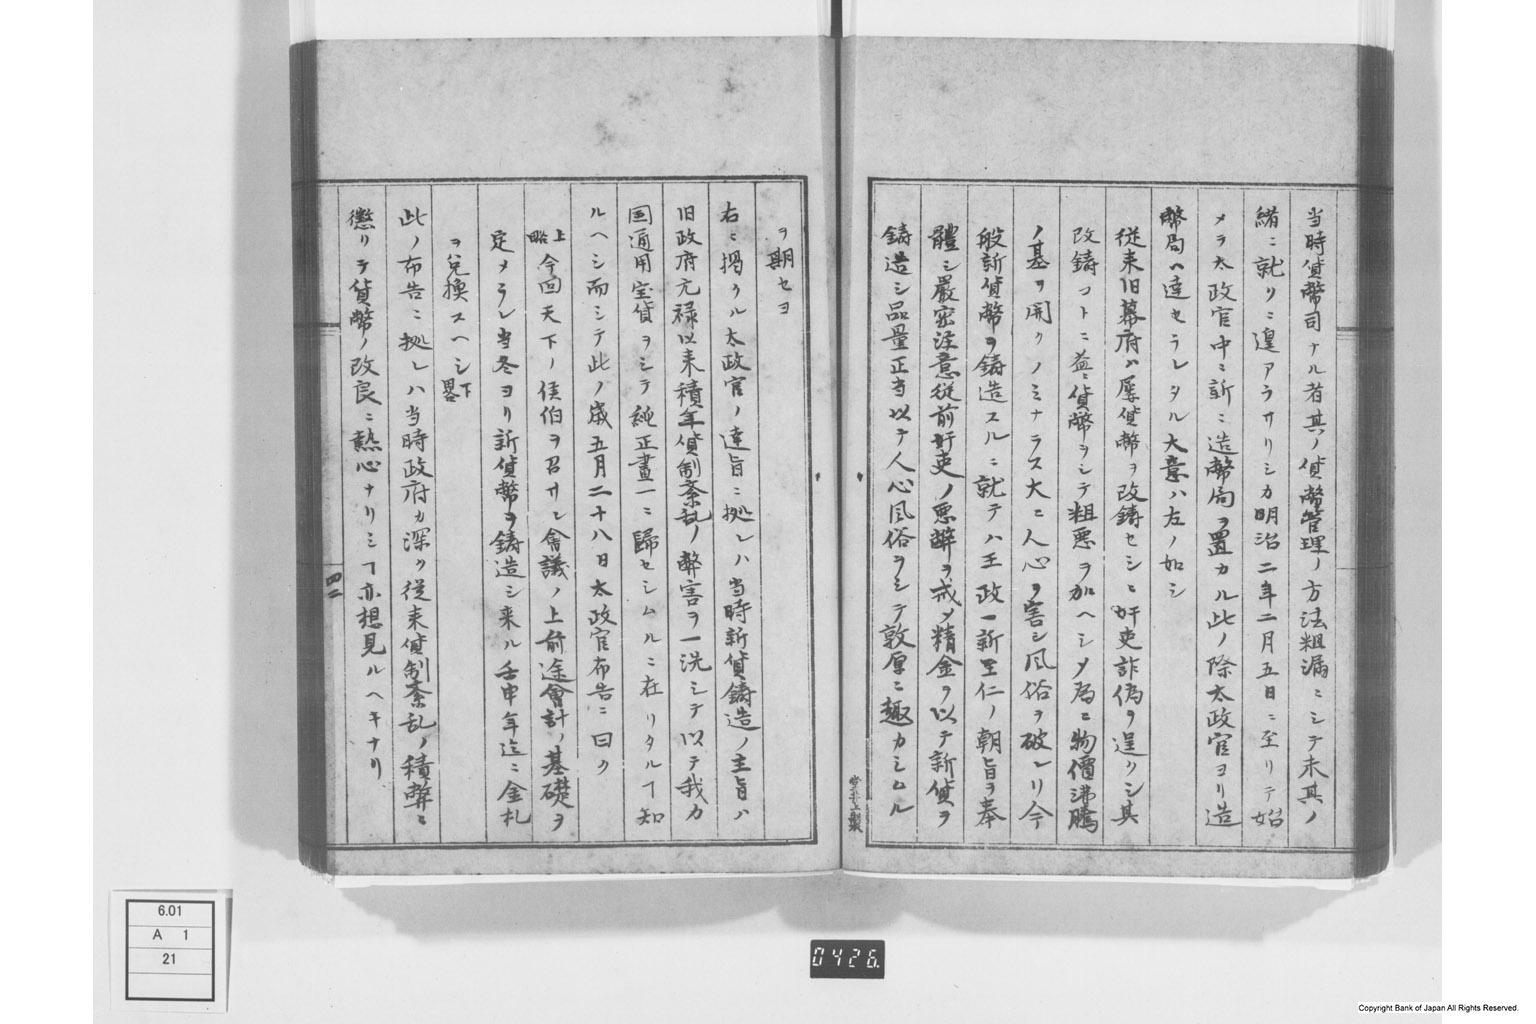 当時貨幣司ナル者其ノ貨幣管理ノ方法粗漏ニシテ未其ノ
緒ニ就リニ遑アラサリシカ明治二年二月五日ニ至リテ始
メラ太政官中ニ新ニ造幣局ヲ置カル此ノ際太政官ヨリ造
幣局ヘ達セラレタル大意ハ左ノ如シ
従来旧幕府ハ屡貨幣ヲ改鋳セシニ奸吏詐偽ヲ逞クシ其
改鋳コトニ益ニ貨幣ヲシテ粗悪ヲ加ヘシメ為ニ物價沸騰
ノ基ヲ開クノミナラス大ニ人心ヲ害シ風俗ヲ破レリ今
般新貨幣ヲ鋳造スルニ就テハ王政一新至仁ノ朝旨ヲ奉
體シ嚴密注意従前奸吏ノ悪弊ヲ戒メ精金ヲ以テ新貨ヲ
鋳造シ品量正当以テ人心風俗ヲシテ敦厚ニ趣カシムル
堂井上製
ヲ期セヨ
右ニ掲クル太政官ノ達旨ニ拠レハ当時新貨鋳造ノ主旨ハ
旧政府元禄以来積年貨制紊乱ノ弊害ヲ一洗シテ以テ我カ
国通用宝貨ヲシテ純正畫一ニ歸セシムルニ在リタルヿ知
ルヘシ而シテ此ノ歳五月二十八日太政官布告ニ曰ク
上略今回天下ノ侯伯ヲ召サレ會議ノ上前途會計ノ基礎ヲ
定メラレ当冬ヨリ新貨幣ヲ鋳造シ来ル壬申年迄ニ金札
ヲ兌換スヘシ下畧
此ノ布告ニ拠レハ当時政府カ深ク従来貨制紊乱ノ積弊ニ
懲リテ貨幣ノ改良ニ熱心ナリシヿ亦想見ルヘキナリ
四二
6.01
A 1
21
0426.
Copyright Bank of Japan All Rights Reserved.